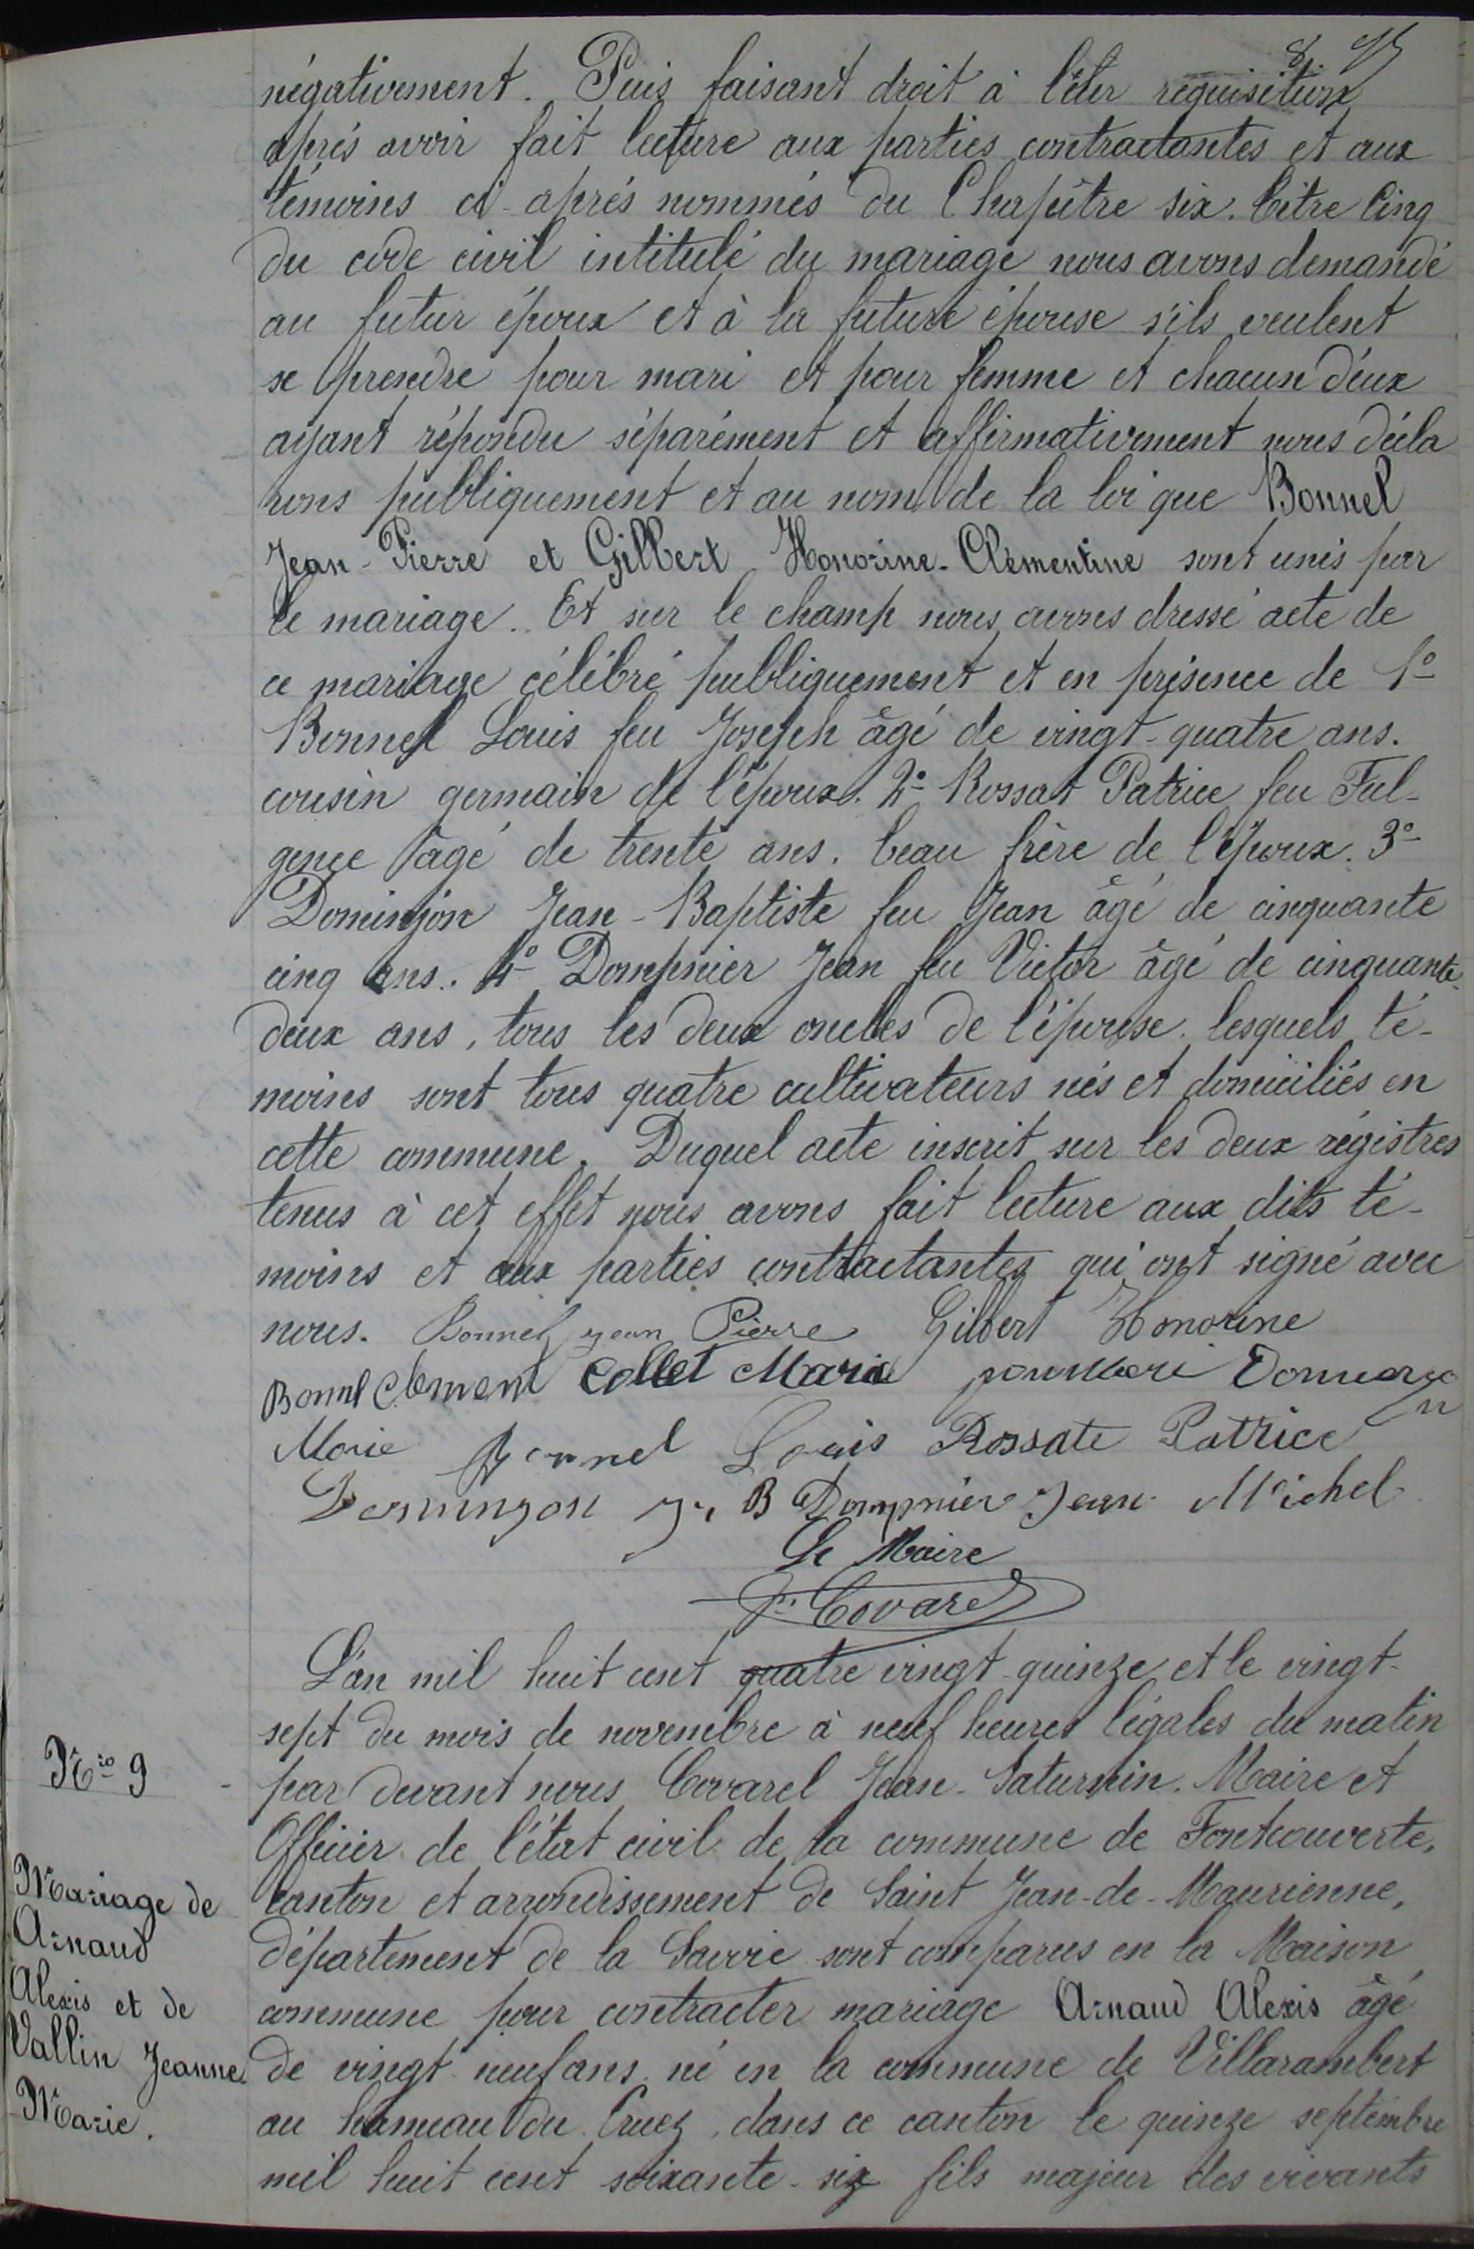 négativement. Puis faisant droit à leur requisition
après avoir fait lecture aux parties contractantes et aux
témoins ci-après nommés du Chapître six. titre Cinq
du code civil intitulé du mariage nous avons demandé
au futur époux et à la future épouse s'ils veulent
se prendre pour mari et pour femme et chacun d'eux
ayant répondu séparément et affirmativement nous décla
rons publiquement et au nom de la loi que Bonnel
Jean-Pierre et Gilbert Honorine-Clémentine sont unis par
le mariage. Et sur le champ nous avons dressé acte de
ce mariage célébré publiquement et en présence de 1°
Bonnel Louis feu Joseph âgé de vingt-quatre ans.
cousin germain de l'époux. 2° Rossat Patrice feu Ful-
gence âgé de trente ans. beau frère de l'époux. 3°
Dominjon Jean-Baptiste feu Jean âgé de cinquante
cinq ans. 4° Dompnier Jean feu Victor âgé de cinquante-
deux ans, tous les deux oncles de l'épouse. lesquels té-
moins sont tous quatre cultivateurs nés et domiciliés en
cette commune. Duquel acte inscrit sur les deux régistres
tenus à cet effet nous avons fait lecture aux dits té-
moins et aux parties contractantes qui ont signé avec
nous. Bonnel jean Pierre Gilbert Honorine
Bonnel Clement Collet Marie
Marie Bonnel Louis Rossate Patrice
Dominjon J. B Dompnier Jean Michel
Le Maire
J. Covarel
L'an mil huit cent quatre vingt-quinze et le vingt-
sept du mois de novembre à neuf heures légales du matin
N° 9
par devant nous Covarel Jean-Saturnin. Maire et
Officier de l'état civil de la commune de Fontcouverte,
Mariage de
Arnaud
Alexis et de
Vallin Jeanne-
Marie.
canton et arrondissement de Saint Jean-de-Maurienne,
département de la Savoie sont comparus en la Maison
commune pour contracter mariage Arnaud Alexis âgé
de vingt-neuf ans. né en la commune de Villarembert
au hameau du Cruez, dans ce canton le quinze septembre
mil huit cent soixante-six fils majeur des vivants